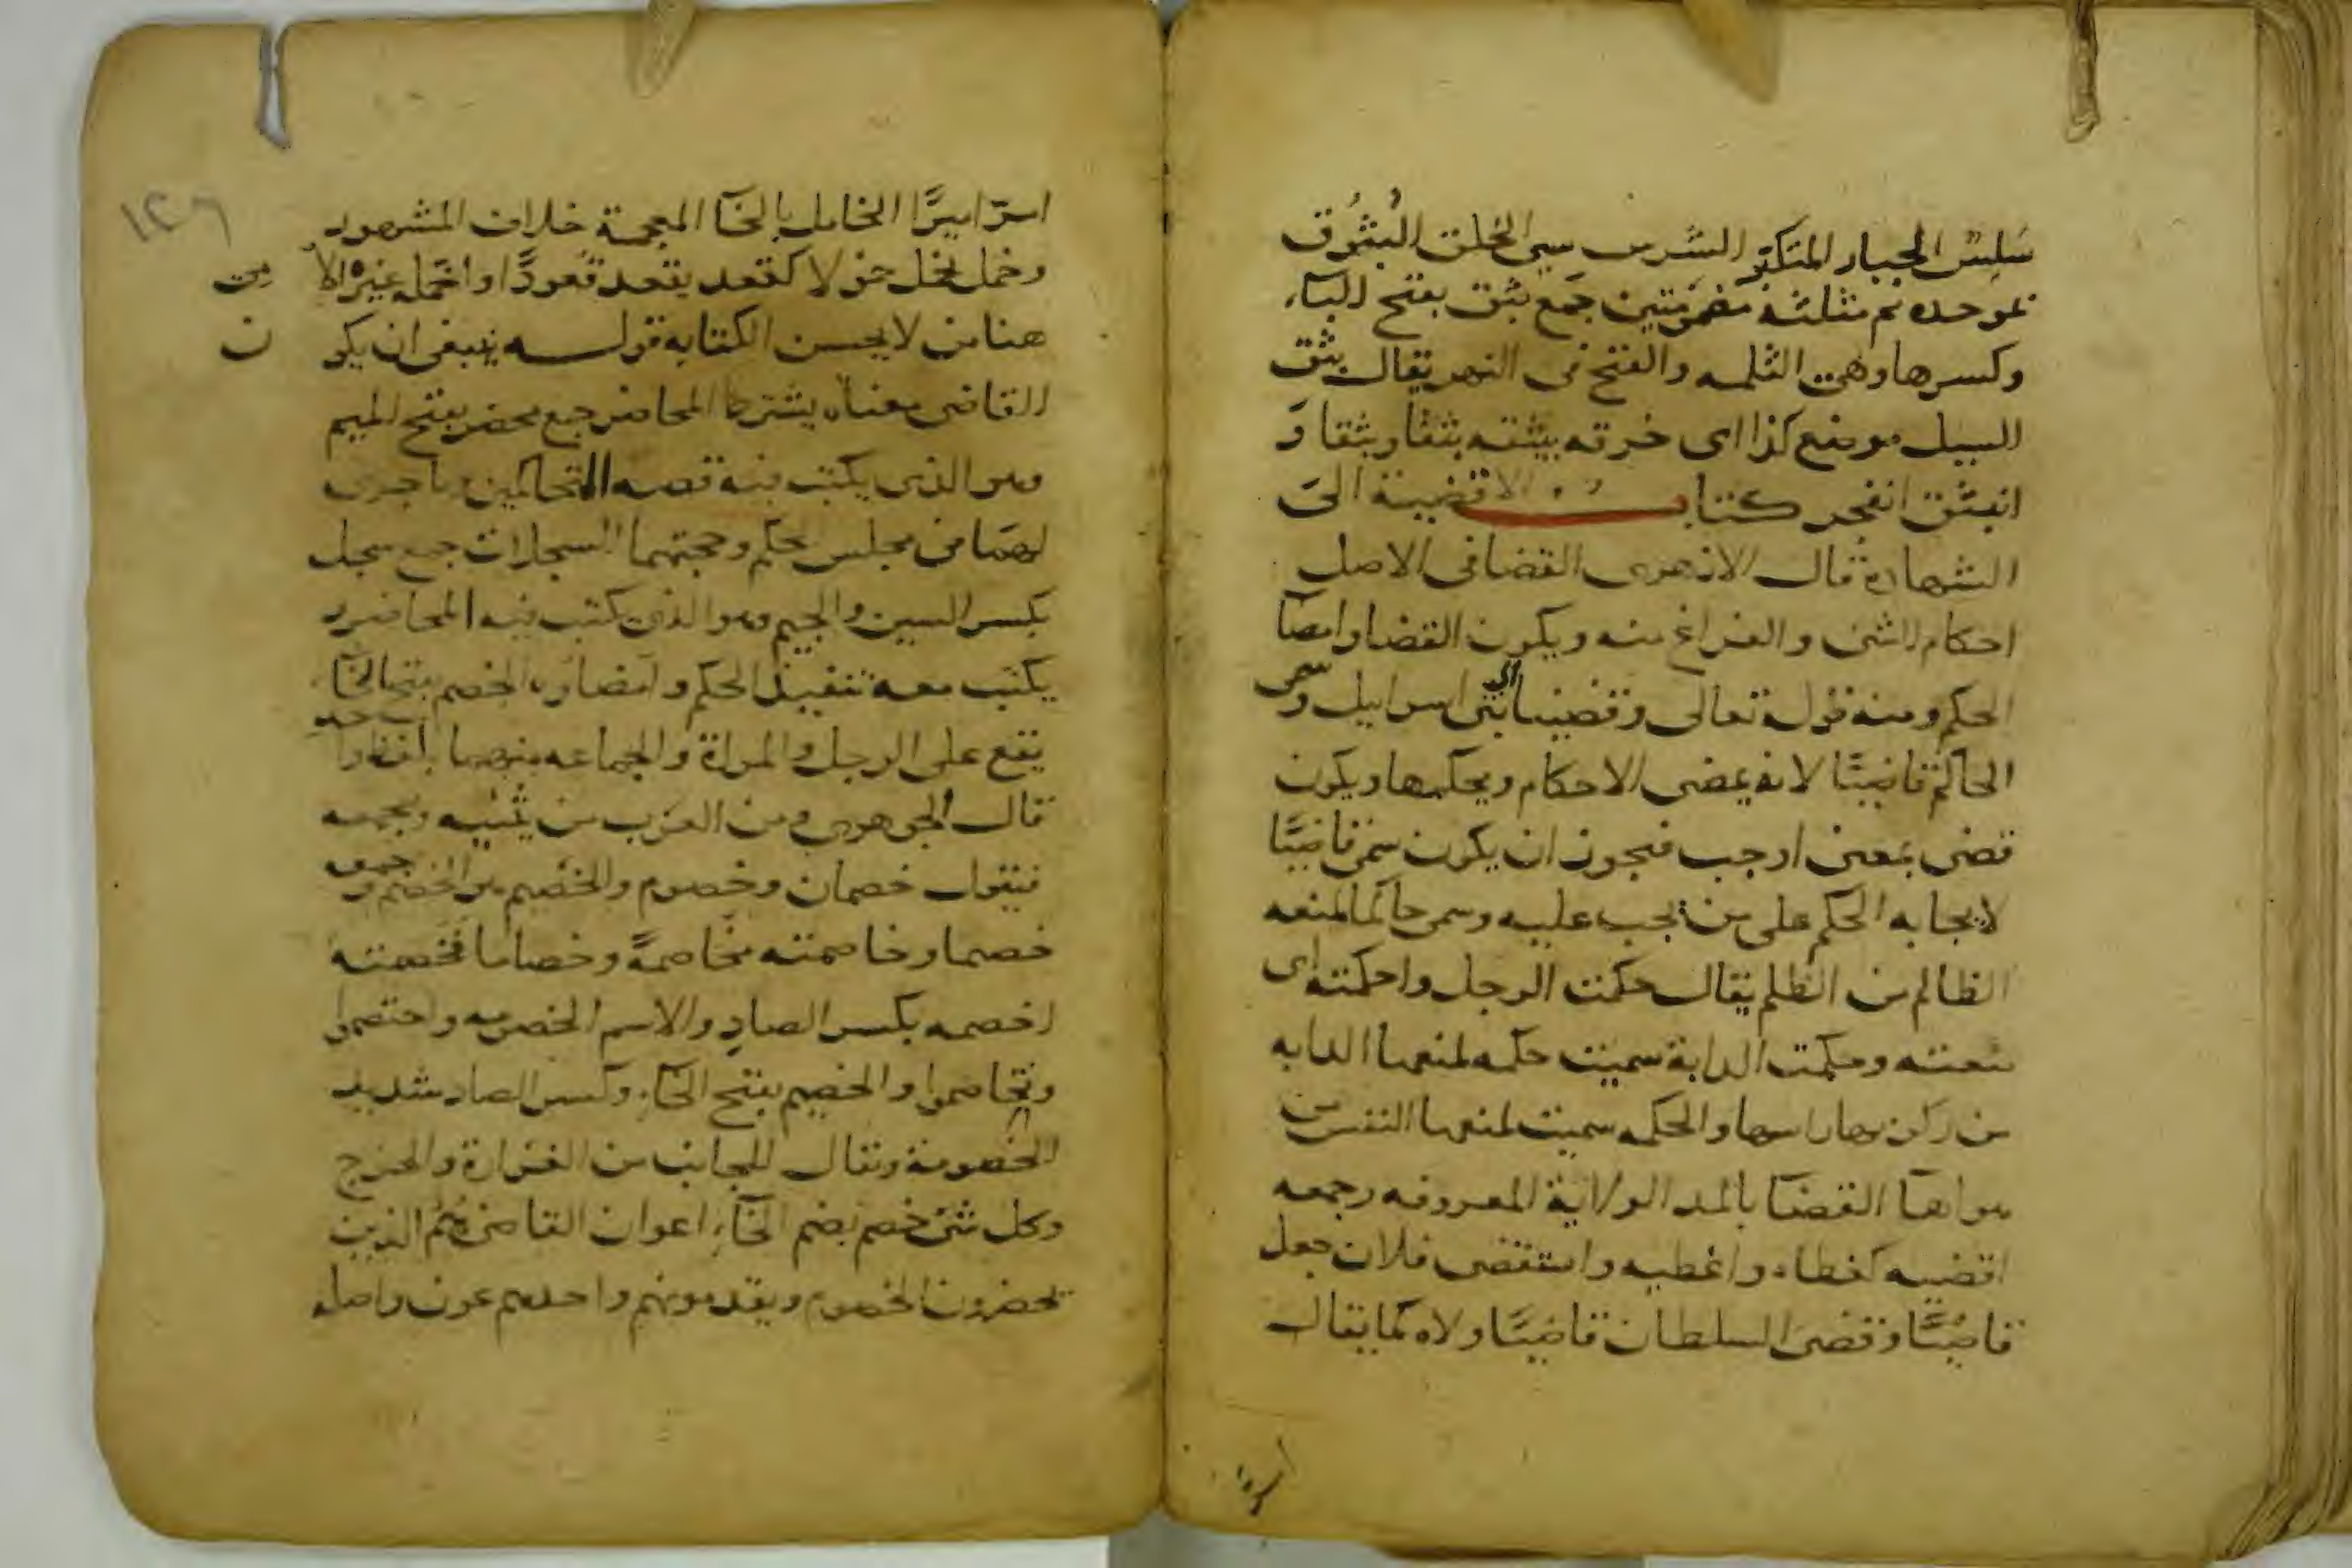 سَلِسٌ الجبار المتكبّر الشرس سيئ الخلق البُثُوق
بموحدة ثم مثلثة مضمومتين جمع بثق بفتح الباء
وكسرها وهي الثلمه والفتح في النهر يقال بثق
السيل موضع كذا اى خرقه يبثقه بثقا وبثقا وَ
انبثق انفجر كتاب الاقضية الى
الشهادة قال الازهرى القضا فى الاصل
احكام الشى والفراغ منه ويكون القضا وامضآ
الحكم ومنه قوله تعالى وقضينا الى بنى اسرايل وسمى
الحاكم قاضيًا لانه يمضى الاحكام ويحكمها ويكون
قضى بمعنى اوجب فيجوز ان يكون سمى قاضيًا
لايجابه الحكم على من يجب عليه وسمى حاكما لمنعه
الظالم من الظلم يقال حكمت الرجل واحكمته اى
منعته وحكمت الدابة سميت حكمه لمنعها الدابه
من ركوبها راسها والحكمه سميت لمنعها النفس من
هواها القضآ بالمد الولاية المعروفه وجمعه
اقضيه كغطاء واغطيه واستقضى فلان جعل
قاضيًا وقضى السلطان قاضيًا ولاه كما يقال
امرّ اميرًا
امرّ اميرًا الخامل بالخآ المعجمة خلاف المشهور
وخمل يخمل خمولا كقعد يقعد قُعودًا واخمله غيره الامى
هنا من لا يحسن الكتابه قوله ينبغى ان يكون
القاضى معناه يشترط المحاضر جمع محضر بفتح الميم
وهو الذى يكتب فيه قصه المتحاكمين وما جرى
لهما فى مجلس الحكم وحجتهما السجلات جمع سجل
بكسر السين والجيم وهو الذى يكتب فيه المحاضر و
يكتب معه تنفيذ الحكم وامضاوه الخصم بفتح الخآ
يقع على الرجل والمراة والجماعه منهما بلفظ واحد
قال الجوهرى ومن العرب من يثنيه ويجمعه
فيقول خصمان وخصوم والخصيم هو الخصم وجمعه
خصما وخاصمته مخاصمةً وخصاما فخصمته
اخصمه بكسر الصاد والاسم الخصومه واختصموا
وتخاصموا والخصم بفتح الخآء وكسر الصاد شديد
الخصومة ويقال للجانب من الغرارة والخرج
وكل شى خصم بضم الخآء اعوان القاضى هم الذين
يحضرون الخصوم ويقدمونهم واحدهم عون واصله
١٢٦